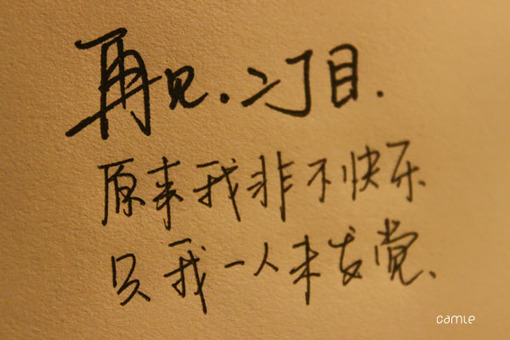 再见.二丁目.
原来我非不快乐.
只我一人未发觉.
camie